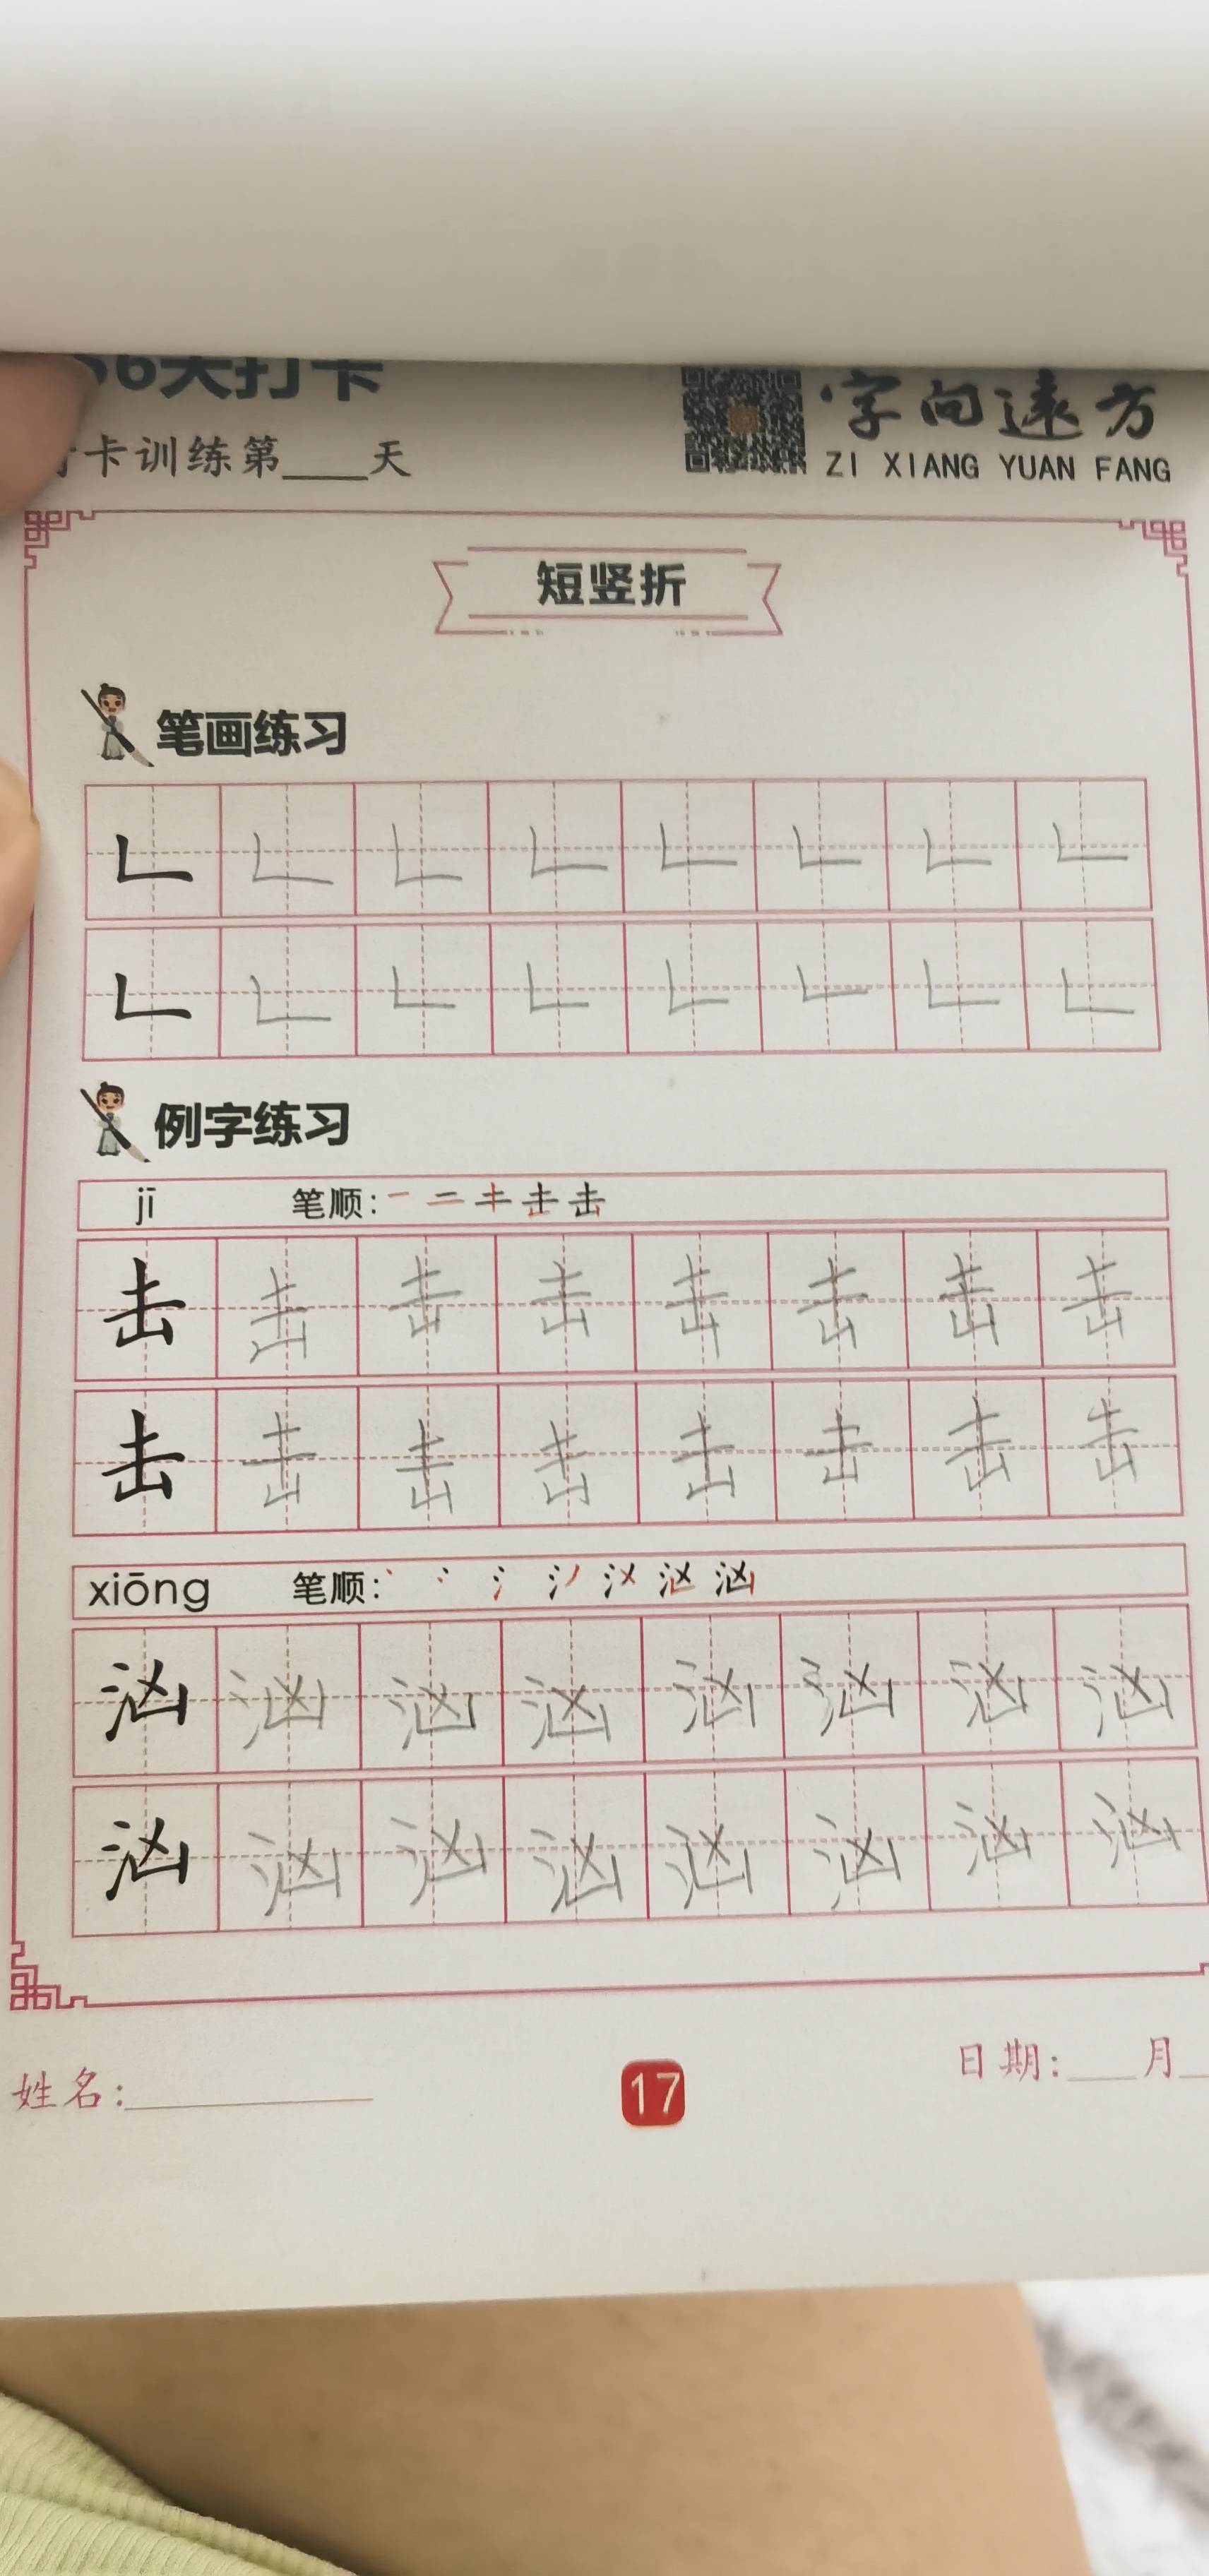 6天打卡
卡训练第____天
字向远方
ZI XIANG YUAN FANG
短竖折
笔画练习
𠃊 𠃊 𠃊 𠃊 𠃊 𠃊 𠃊 𠃊
𠃊 𠃊 𠃊 𠃊 𠃊 𠃊 𠃊 𠃊
例字练习
jī 笔顺:
击 击 击 击 击 击 击 击
击 击 击 击 击 击 击 击
xiōng 笔顺:
汹 汹 汹 汹 汹 汹 汹 汹
汹 汹 汹 汹 汹 汹 汹 汹
姓名:________
17
日期:___月